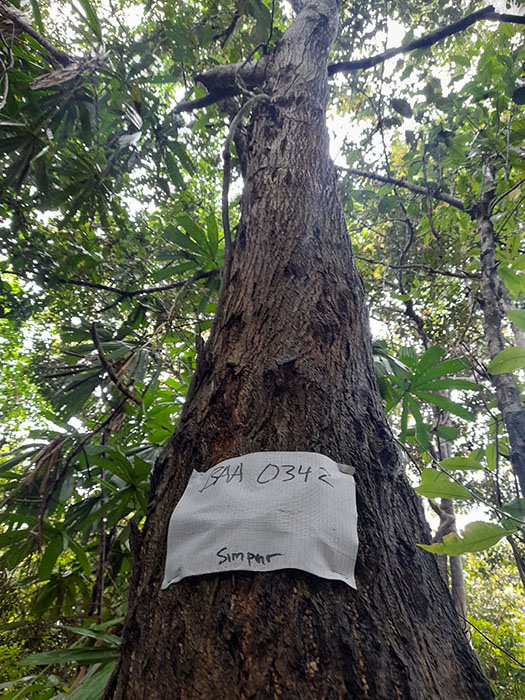 BAA 0342
Simpur